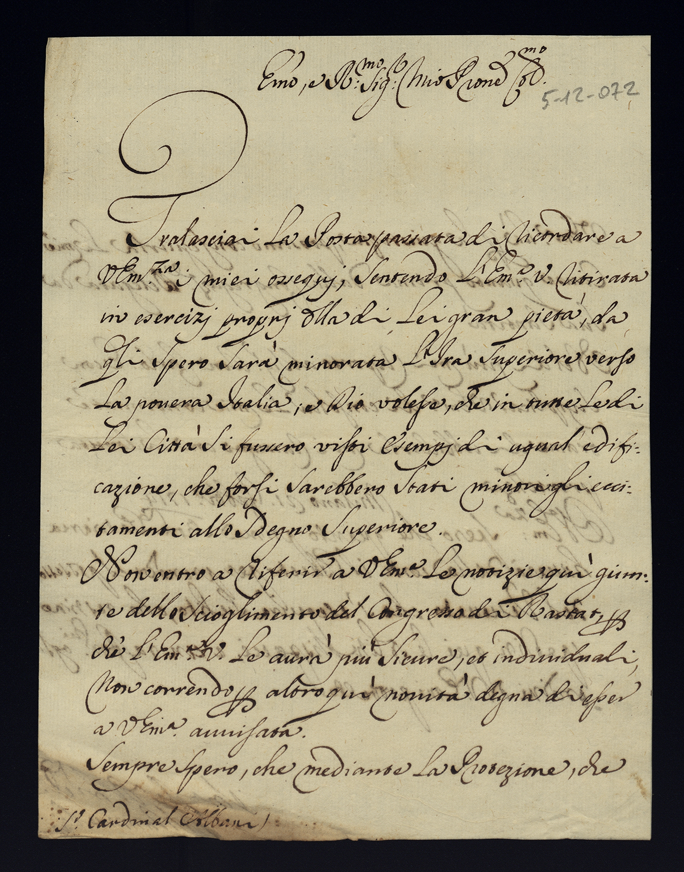 Emo, e R.mo Sig.r Mio Prone Col.mo
5-12-072
Tralasciai La Posta passata di ricordare a
V Em.za i miei ossequj, sentendo L'Em.a V. ritirata
in esercizj proprj dlla di Lei gran pietà, da
qli spero sarà minorata L'Ira Superiore verso
La povera Italia, e Dio volesse, che in tutte Le di
Lei Città si fussero visti esempj di ugual edifi-
cazione, che forsi sarebbero stati minori gli ecci-
tamenti allo sdegno Superiore
Non entro a riferir a V Em.a Le notizie quì giun-
te dello scioglimento del Congresso di Rastat, p
chè L'Em.a V. Le aurà più sicure, et individuali,
non correndo p altro quì novità degna di esser
a V Em.a auuisata.
Sempre spero, che mediante La Protezione, che
S.r Cardinal Albani)